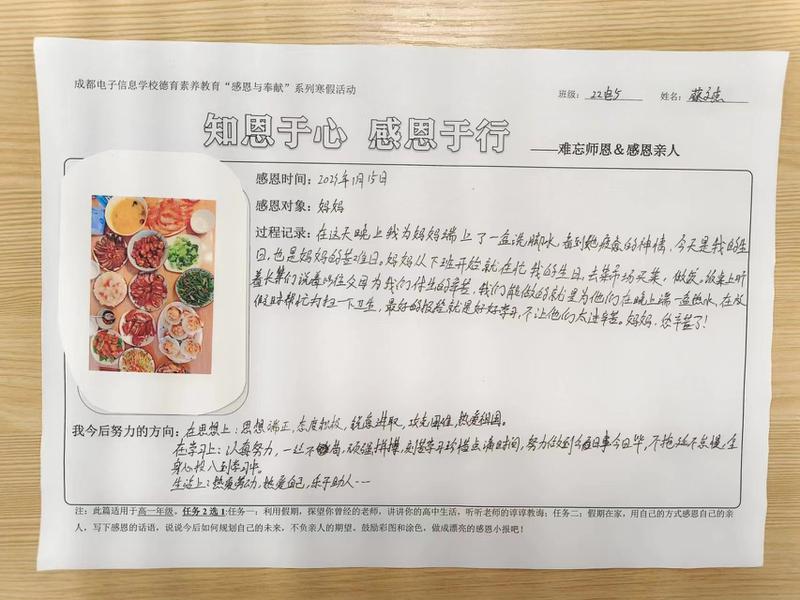 成都电子信息学校德育素养教育“感恩与奉献”系列寒假活动
班级：22电5 姓名：
知恩于心 感恩于行
——难忘师恩&感恩亲人
感恩时间：2023年1月15日
感恩对象：妈妈
过程记录：在这天晚上我为妈妈端上了一盆洗脚水，看到她疲惫的神情，今天是我的生
日，也是妈妈的苦难日，妈妈从下班开始就在忙我的生日，去菜市场买菜，做饭，饭桌上听
着长辈们说着以往父母为我们付出的辛苦，我们能做的就是为他们在晚上端一盆热水，在放
假时帮忙打扫一下卫生，最好的报答就是好好学习，不让他们太过辛苦。妈妈，您辛苦了！
我今后努力的方向：在思想上：思想端正，态度积极，锐意进取，攻克困难，热爱祖国。
在学习上：认真努力，一丝不苟，顽强拼搏，刻苦学习珍惜点滴时间，努力做到今日事今日毕，不拖延不怠慢，全
身心投入到学习中。
生活上：热爱劳动，热爱自己，乐于助人……
注：此篇适用于高一年级。任务2选1:任务一：利用假期，探望你曾经的老师，讲讲你的高中生活，听听老师的谆谆教诲；任务二：假期在家，用自己的方式感恩自己的亲
人，写下感恩的话语，说说今后如何规划自己的未来，不负亲人的期望。鼓励彩图和涂色，做成漂亮的感恩小报吧！